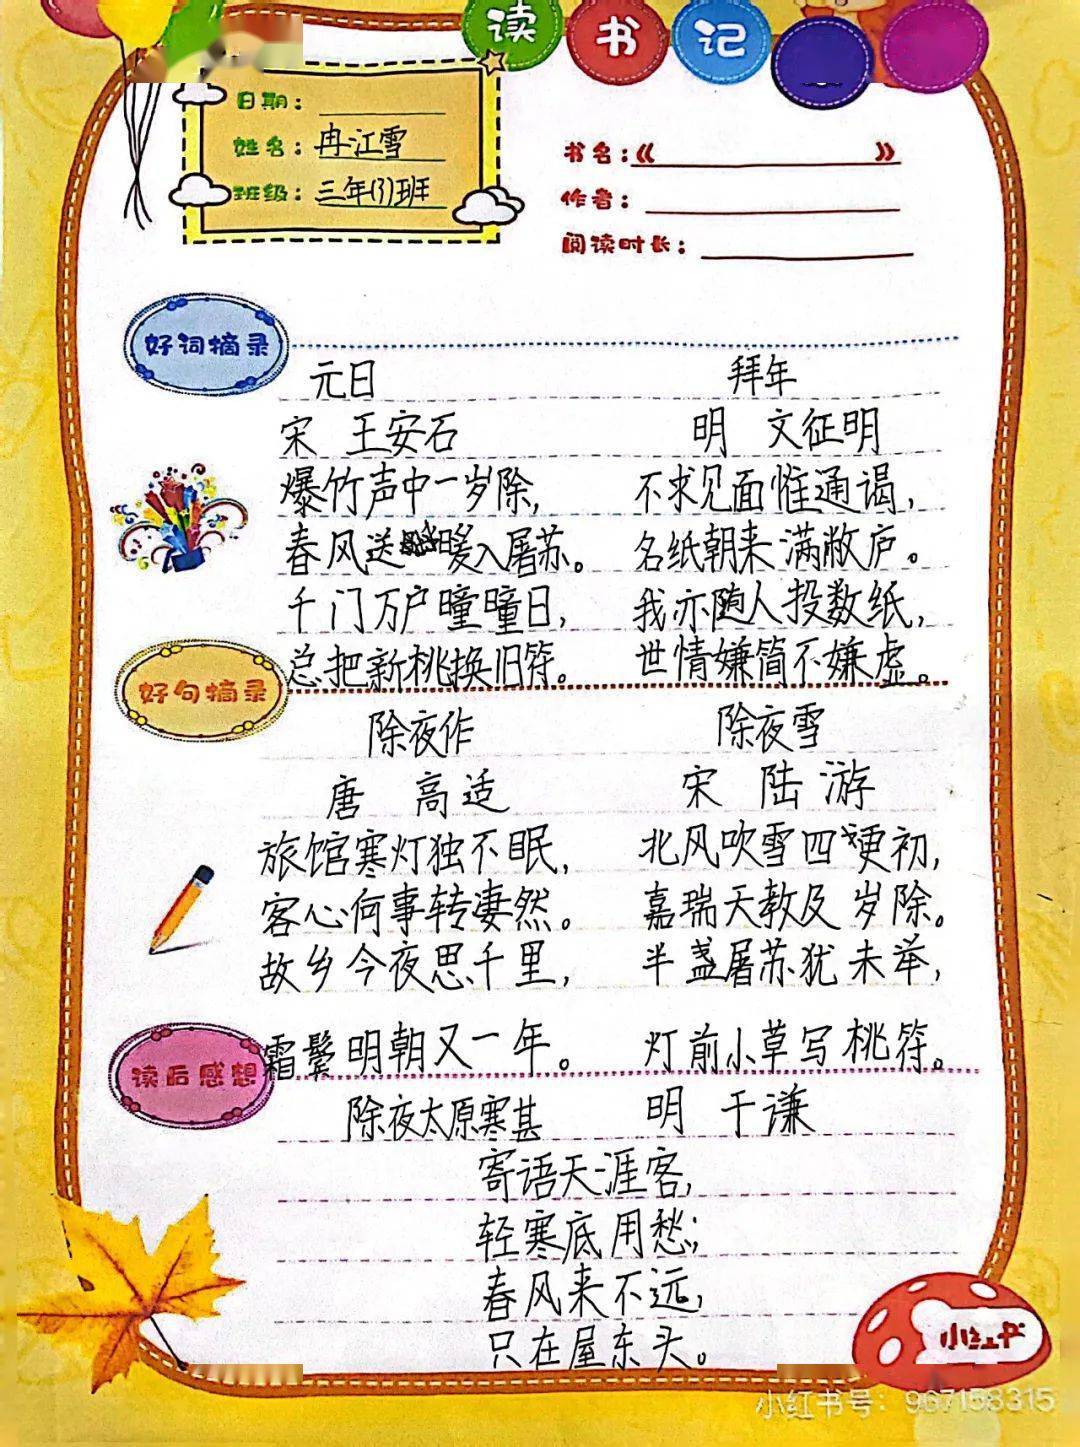 读书记
日期：
姓名：冉江雪
班级：三年(3)班
书名：《 》
作者：
阅读时长：
好词摘录
元日 拜年
宋 王安石 明 文征明
爆竹声中一岁除， 不求见面惟通谒，
春风送暖入屠苏。 名纸朝来满敝庐。
千门万户曈曈日， 我亦随人投数纸，
总把新桃换旧符。 世情嫌简不嫌虚。
好句摘录
除夜作 除夜雪
唐 高适 宋 陆游
旅馆寒灯独不眠， 北风吹雪四更初，
客心何事转凄然。 嘉瑞天教及岁除。
故乡今夜思千里， 半盏屠苏犹未举，
霜鬓明朝又一年。 灯前小草写桃符。
读后感想
除夜太原寒甚 明 于谦
寄语天涯客，
轻寒底用愁；
春风来不远，
只在屋东头。
小红书
小红书号：967158315